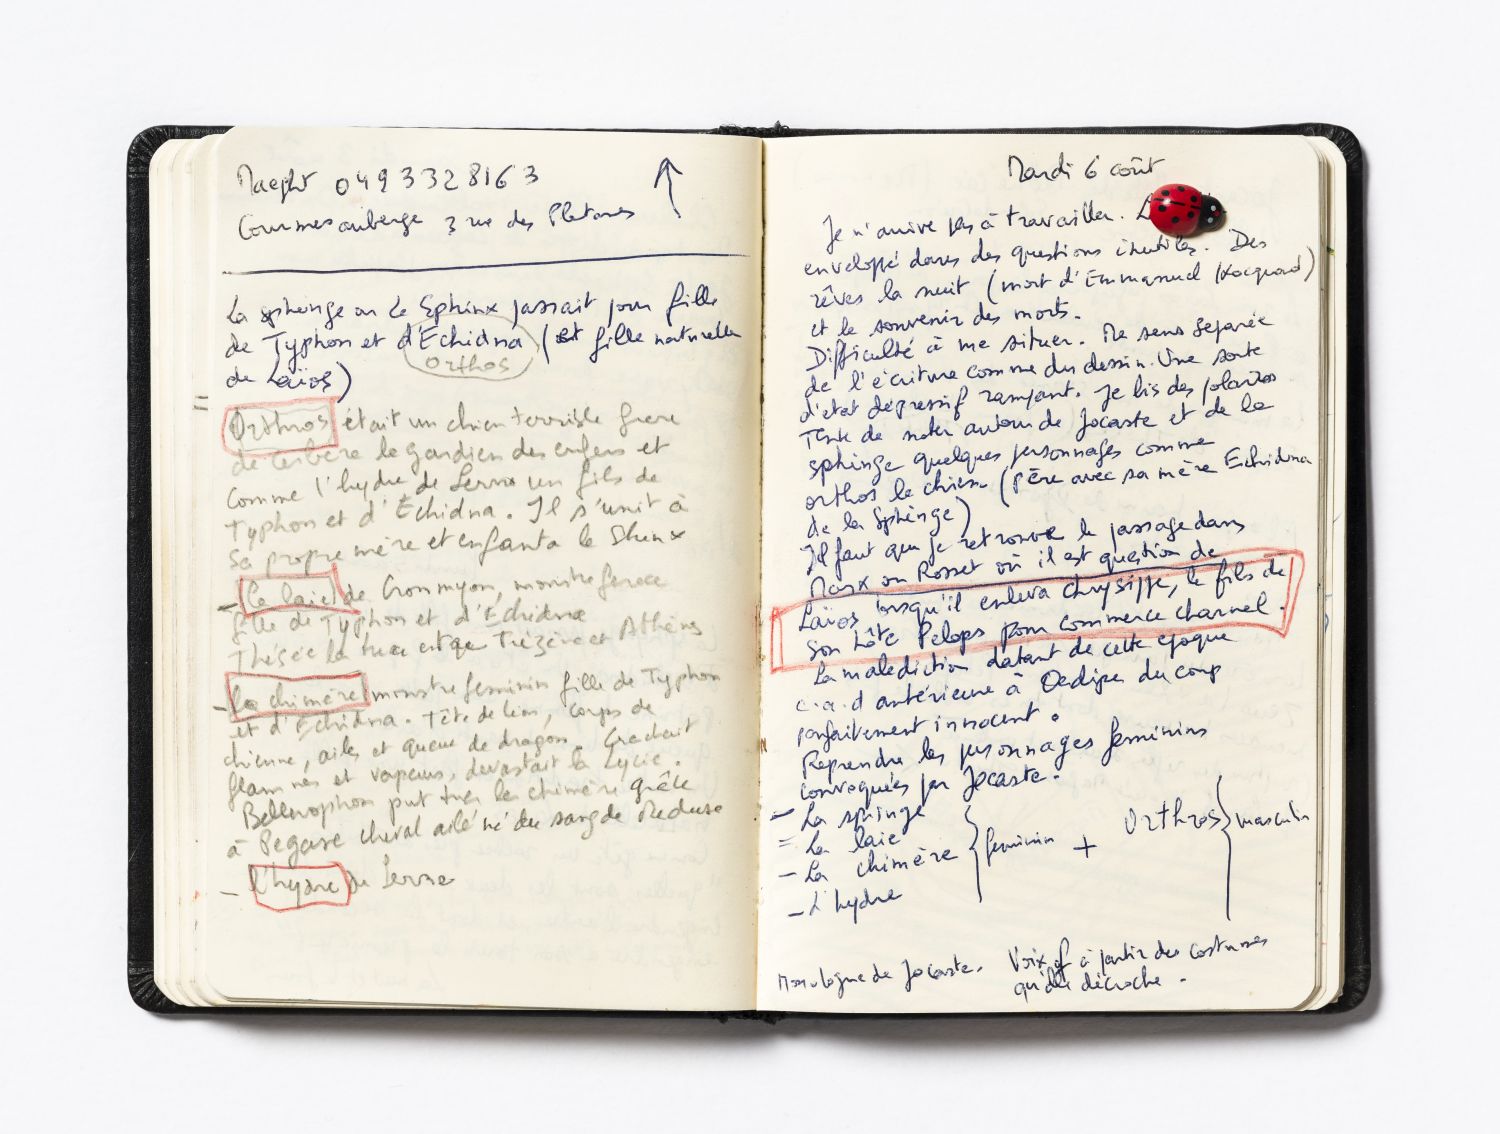 0493328163
Courmes auberge 3 rue des Platanes
La sphinge ou le Sphinx passait pour fille
de Typhon et d'Echidna (et fille naturelle
orthos
de Laïos)
Orthros était un chien terrible frère
de cerbère le gardien des enfers et
comme l'hydre de Lerne un fils de
Typhon et d'Echidna. Il s'unit à
sa propre mère et enfanta le Sphinx
– La laie de Crommyon, monstre féroce
fille de Typhon et d'Echidna
Thésée la tua entre Trézène et Athènes
– La chimère monstre féminin fille de Typhon
et d'Echidna. Tête de lion, corps de
chienne, ailes et queue de dragon. Crachait
flammes et vapeurs, devastait la Lycie.
Bellerophon put tuer la chimère grâce
à Pegase cheval ailé né du sang de Meduse
– l'hydre de Lerne
Mardi 6 août
Je n'arrive pas à travailler.
enveloppé dans des questions inutiles. Des
rêves la nuit (mort d'Emmanuel Hocquard)
et le souvenir des morts.
Difficulté à me situer. Me sens séparée
de l'écriture comme du dessin. Une sorte
d'état dépressif rampant. Je lis des polars
Tente de noter autour de Jocaste et de la
sphinge quelques personnages comme
orthos le chien (père avec sa mère Echidna
de la Sphinge)
Il faut que je retrouve le passage dans
Marx ou Rosset où il est question de
Laïos lorsqu'il enleva chrysippe, le fils de
son hôte Pelops pour commerce charnel.
La malediction datant de cette epoque
c.a.d antérieure à Oedipe du coup
parfaitement innocent.
Reprendre les personnages feminins
convoqués par Jocaste.
– La sphinge
= La laie
– La chimère
– L'hydre
feminin + Orthros masculin
Monologue de Jocaste. Voix off à partir des costumes
qu'elle décroche.